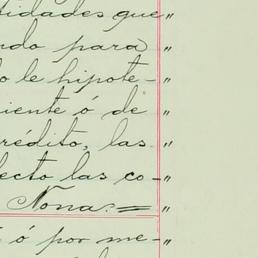 tidades que "
ndo para "
o le hipote- "
iente ó de "
rédito, las "
fecto las co- "
Nona:= "
ó por me- "